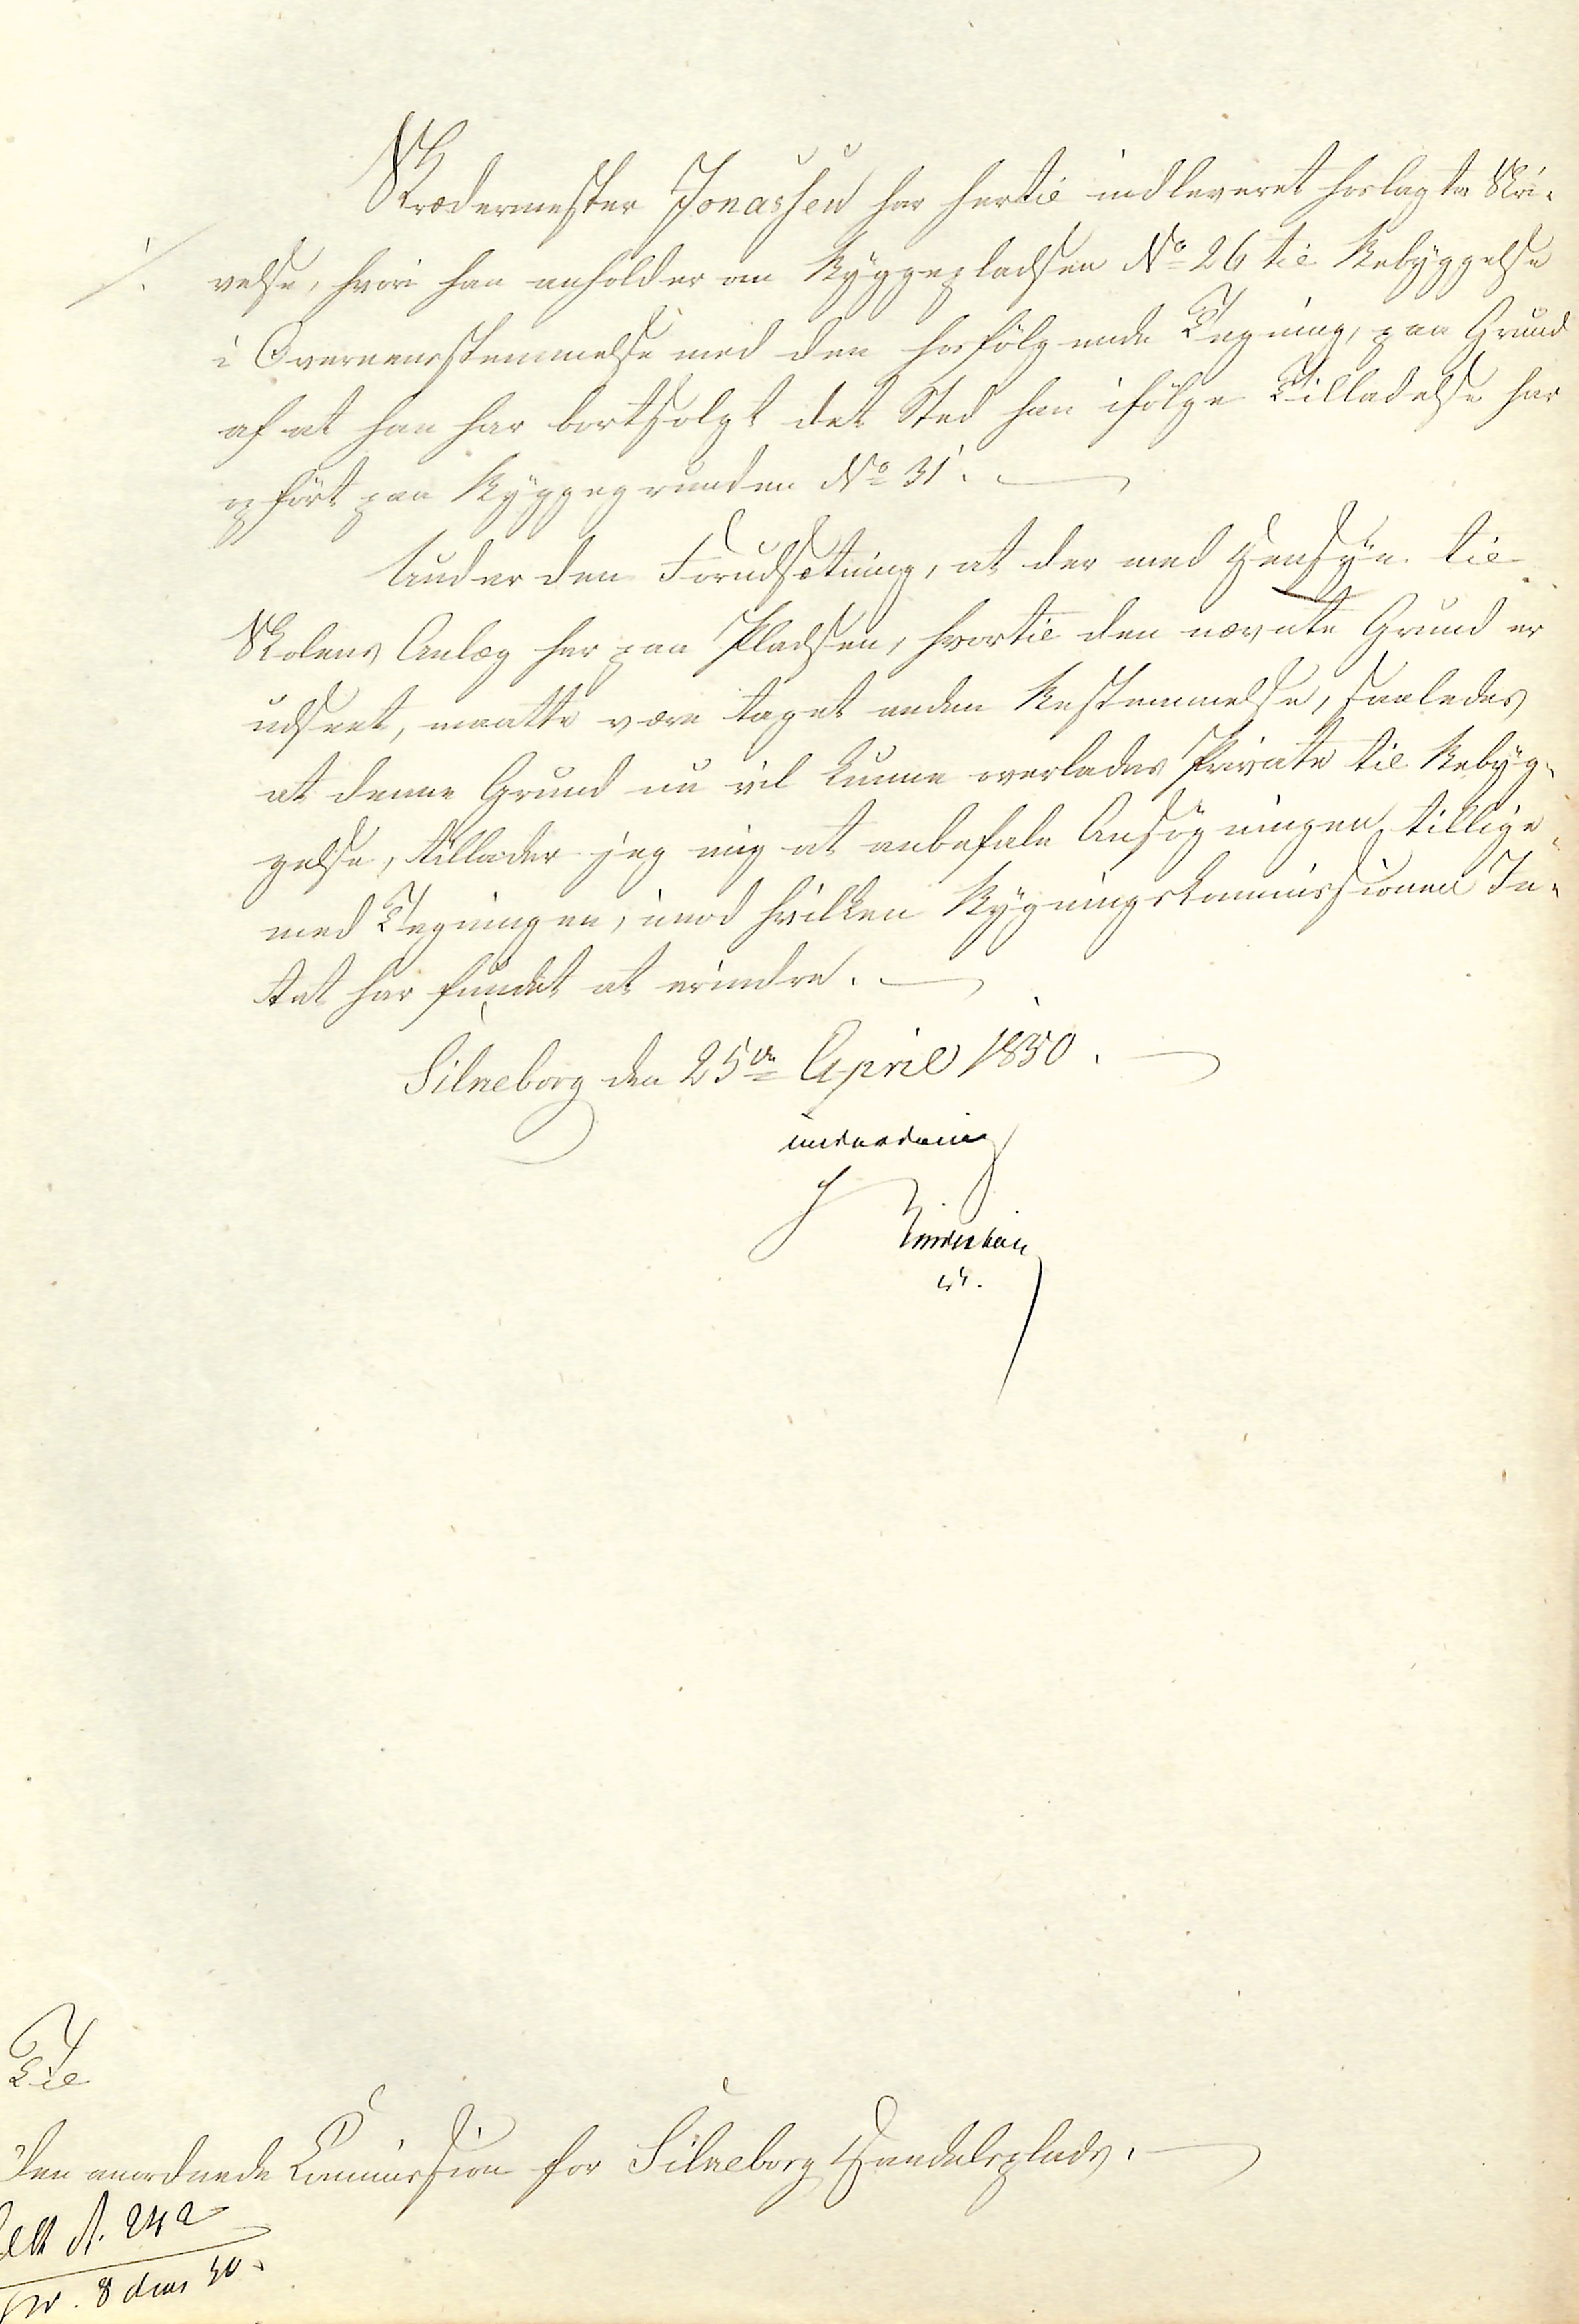 Skrædermester Jonassen har hertil indleveret hoslagte Skri-
velse, hvori han anholder om Byggepladsen No 26 til Bebyggelse
i Overeensstemmelse med den hosfølgende Tegning, paa Grund
af at han har bortsolgt det Sted han ifølge Tilladelse har
opført paa Byggegrunden No 31.
Under den Forudsætning, at der med Hensyn til
Skolens Anlæg her paa Pladsen, hvortil den nævnte Grund er
udseet, maatte være taget anden Bestemmelse, saaledes
at denne Grund nu vil kunne overlades Private til Bebyg-
gelse, tillader jeg mig at anbefale Ansøgningen tillige
med Tegningen, imod hvilken Bygningskommissionen In-
tet har fundet at erindre.
Silkeborg den 25de April 1850.
underdanig
Til
Den anordnede Commission for Silkeborg Handelsplads.
No. 242